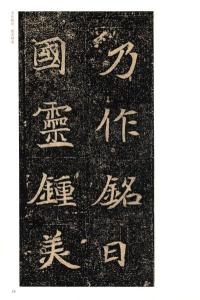 乃作銘曰
國靈鍾美